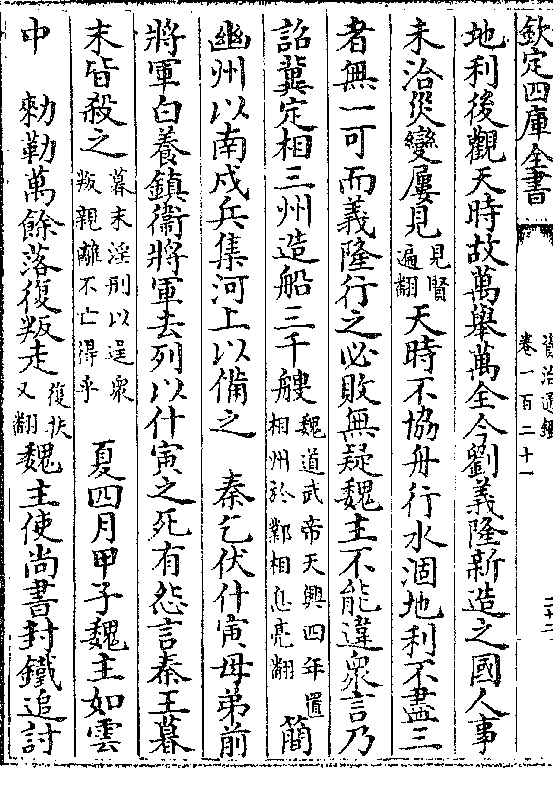 欽定四庫全書
資治通鑑
卷一百二十一
地利後觀天時故萬舉萬全今劉義隆新造之國人事
未洽災變屢見見賢遍翻天時不協舟行水涸地利不盡三
者無一可而義隆行之必敗無疑魏主不能違衆言乃
詔冀定相三州造船三千艘魏道武帝天興四年置相州於鄴相息亮翻簡
幽州以南戍兵集河上以備之　秦乞伏什寅母弟前
將軍白養鎮衞將軍去列以什寅之死有怨言秦王暮
末皆殺之暮末淫刑以逞衆叛親離不亡得乎　夏四月甲子魏主如雲
中　勑勒萬餘落復叛走復扶又翻魏主使尚書封鐵追討